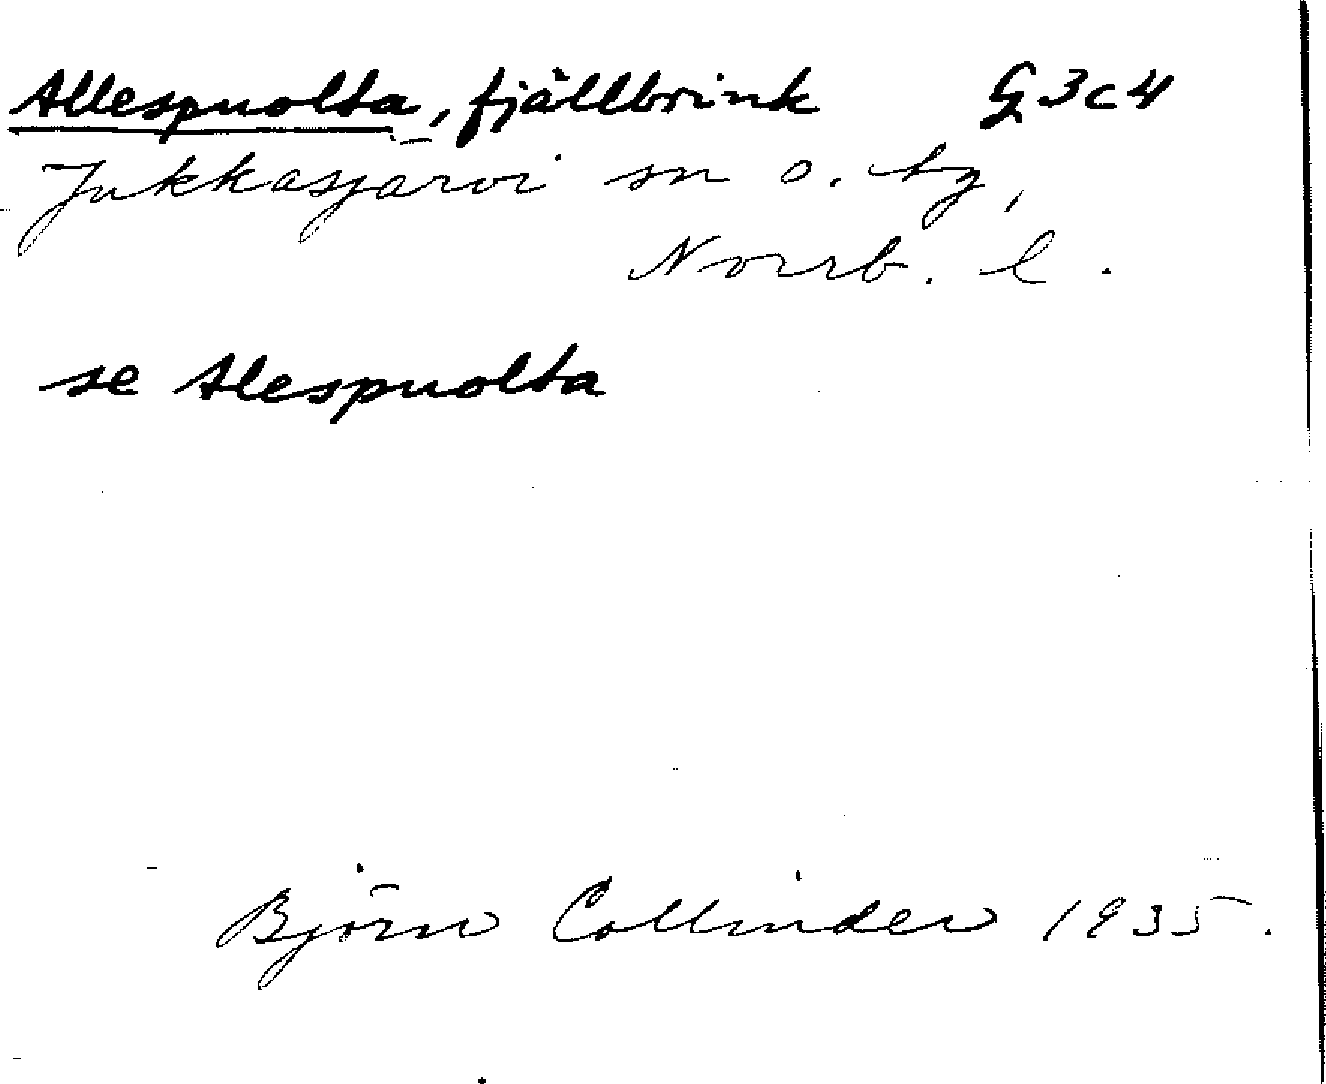 Allespuolta, fjällbrink G3c4
Jukkasjärvi sn o. tg,
Norrb. l.
se Alespuolta
Björn Collinder 1935.